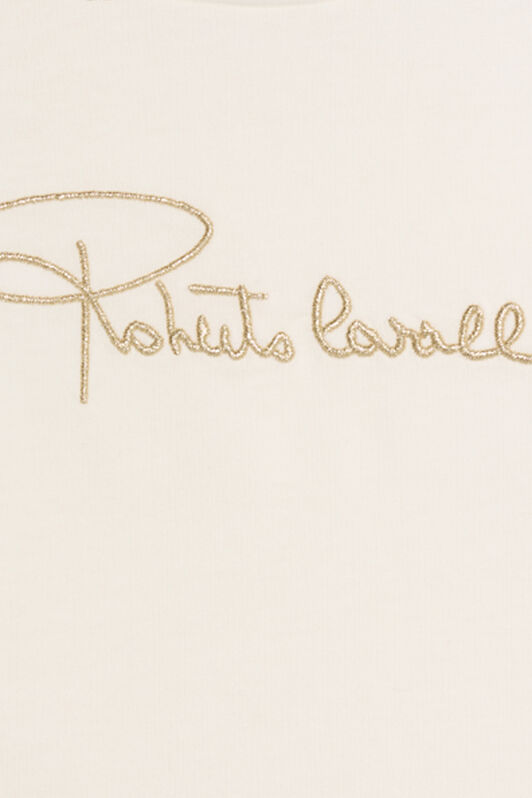 Roberto Cavall